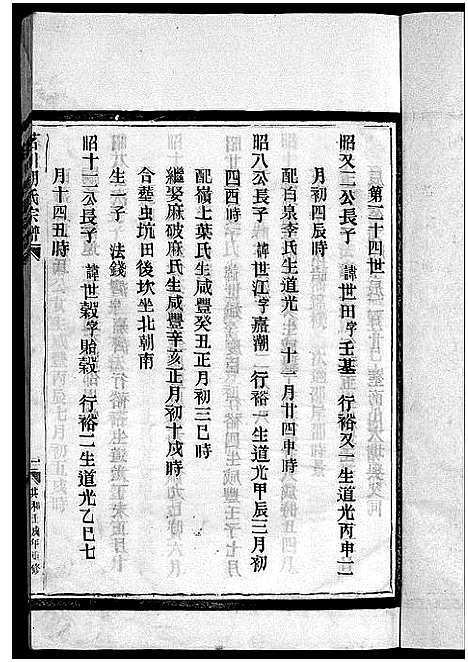 第三十四世
昭又二公長子 諱世田字壬基 行裕又一生道光丙申二
月初四辰時
配白泉李氏生道光 十二月廿四申時
昭八公長子 諱世江字嘉潮 行裕一生道光甲辰三月初
四酉時
配嶺上葉氏生咸豐癸丑正月初三巳時
繼娶麻破麻氏生咸豐辛亥正月初十戌時
合塟虫坑田後坎坐北朝南
生一子 法錢
昭十二公長子 諱世穀字貽穀 行裕二生道光乙巳七
月十四丑時
氏宗譜
共和壬戌年重修